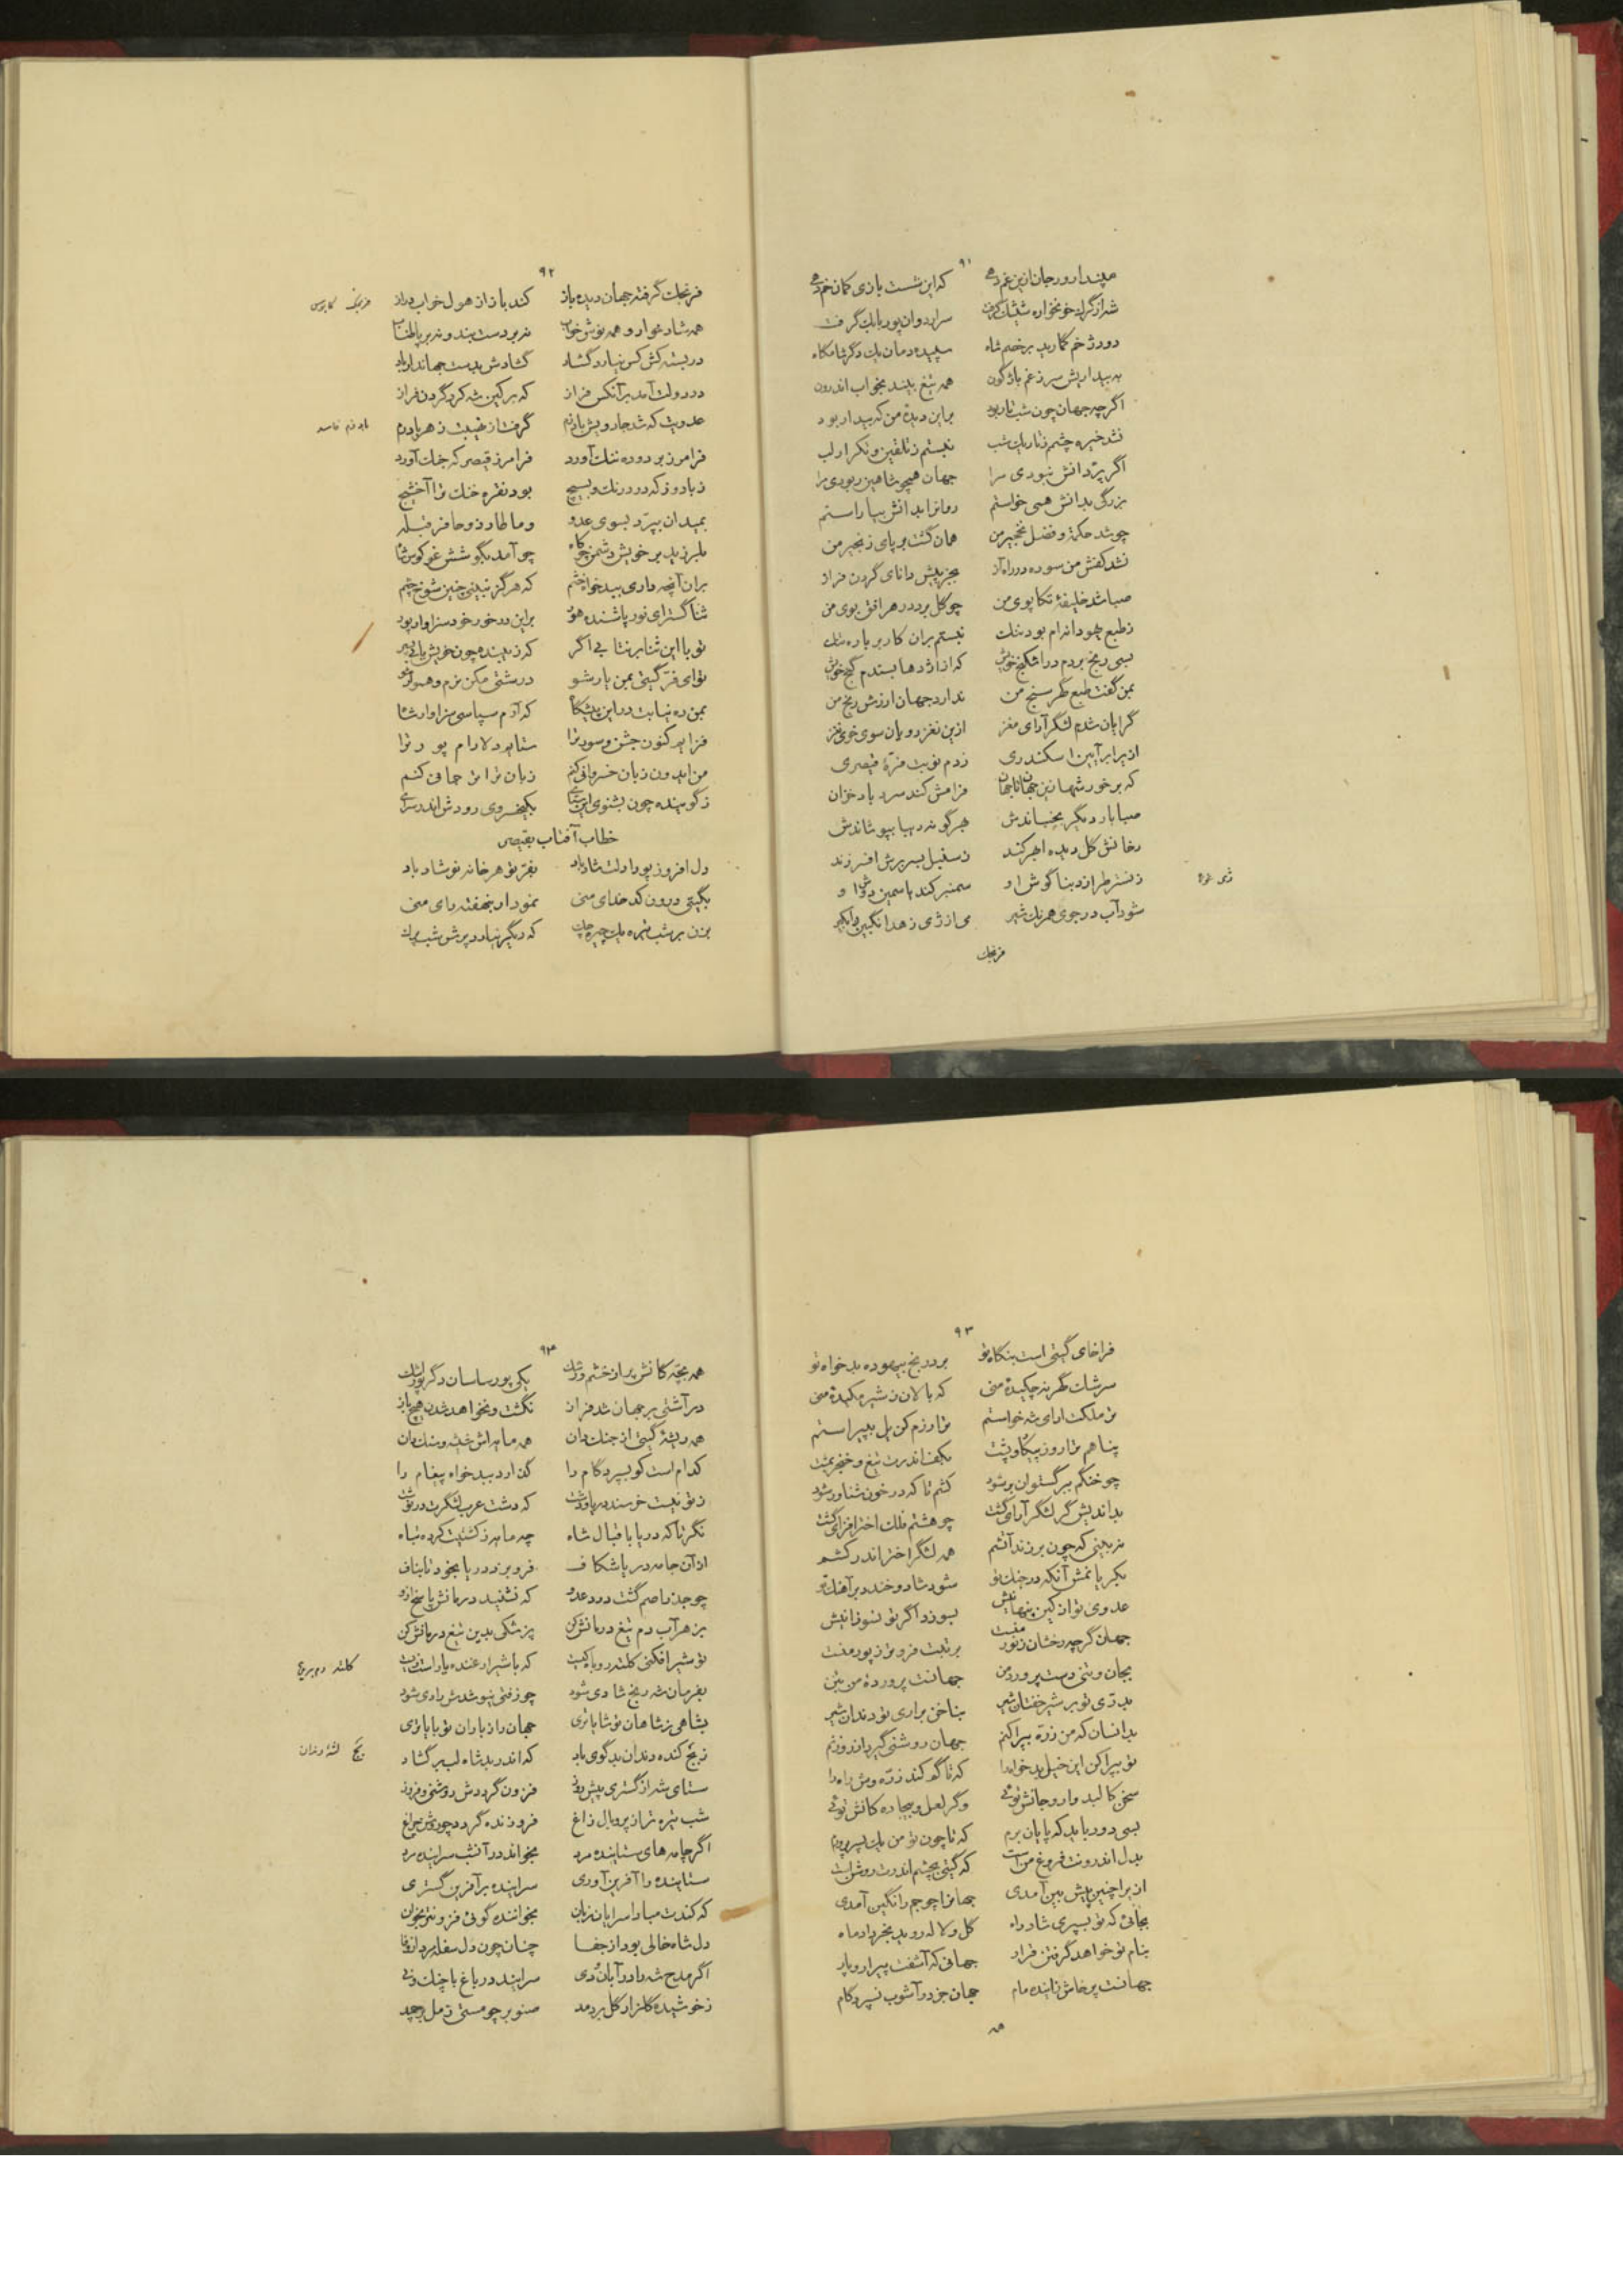 ۹۱
مپندار در جان ازین غم دمی که این شست بازی کمان خم دمی
شرار گرگ خونخواره شبشک گرفت سرار دوان پور بابک گرفت
دو دژخم گمارید بر خصم شاه سپیده‌دمان یک دگر شامگاه
به بیداریش سر ز غم باژگون همه تیغ بیند بخواب اندرون
اگر چه جهان چون شب تار بود بر این دیدهٔ من که بیدار بود
نشد خیره چشم ز تاریک شب نبستم ز تلقین و تکرار لب
اگر پرّ دانش نبودی مرا جهان همچو شاهین ربودی مرا
بزرگی بدانش همی خواستم روانرا بدانش بیاراستم
چو شد حکمة و فضل نخجیر من همان گشت بر پای زنجیر من
نشد کفش من سوده در راه آز بجز پیش دانای گردن فراز
صبا شد خلیفهٔ تکاپوی من چو گل برد در هر افق بوی من
ز طبع چو دانرام بود ننگ نبستم بران کار بر باره تنگ
بسی رنج بردم در اشکنج خویش که از اژدها بستدم گنج خویش
بمن گفت طبع گهر سنج من ندارد جهان ارزش رنج من
گرایان شدم لشگر آرای مغز ازین نغز رویان سوی خوی نغز
ازیرا بر آیین اسکندری زدم نوبت فرّهٔ قیصری
که بر خور شهها زین جهان تا بجهان فرامش کند سرد باد خزان
صبا بار دیگر بجنباندش بهر گونه دیبا بپوشاندش
رخانش گل دیده احمر کند ز سنبل بسر برش افسر زند
ز نستر طرازد بناگوش او سمنبر کند یاسمین دوش او
شود آب در جوی همرنگ شیر می از ژی ز هدانگبین وابگیر
ژی غوک
فرنجک
۹۲
فرنجک گرفته جهان دیده باز کند باز از هول خواب دراز
فرنجک کابوس
همه شاد خوار و همه نوش خواب نه بر دست بند و نه بر پا طناب
در بسته کش کس نیارد گشاد گشادش بدست جهاندار باد
در دولت آمد بر آنکس فراز که بر کین شه کرد گردن فراز
عدویت که شد جادویش یادرم گرفت از نهیبت ز هر یادرم
فرامرز بر دوده ننگ آورد فرامرز قیصر که جنگ آورد
ز بادوز که در درنگ و بسیچ بود نقره خنگ ترا آخشیج
بمیدان بپرّد بسوی عدو و ما طار ذو حافر قبله
بلرزید بر خویش دشمن چو کاه چو آمد بگوشش غو کوس شاه
بران آنچه داری ببدخواه خشم که هرگز نبینی چنین شوخ چشم
ثنا گسترای نور پاشنده هور براین در خور خود سزاوار پور
تو با این ثنا بر نتابی اگر که زیبنده چون خویش یابی پسر
توای فرّ گیتی بمن یار شو درشتی مکن نرم و هموار شو
بمن ده نیابت در این پیشگاه که آرم سپاسی سزاوار شاه
فزاید کنون جشن و سور ترا ستاید دلارام پور ترا
من ایدون زبان خسروانی کنم زبان ترا ترجمانی کنم
ز گوینده چون بشنوی این ثنای بکیخسروی رودش اندر سرای
خطاب آفتاب بقیصر
دل افروز پورا دلت شاد باد بفرّ تو هر خانه نوشاد باد
بگیتی درون کدخدای منی نمودار بنهفته رای منی
بزن بر شب تیره یک چیره چک که دیگر نیارد پرش شب پرک
۹۳
فراخای گیتی است بنگاه تو برد رنج بیهوده بدخواه تو
سرشک گهر نه چکیدهٔ منی که بالان ز شیره مکیدهٔ منی
ترا ملکت ارای شه خواستم ترا رزم کن یل بپیراستم
پناهم ترا روز پیکار و پشت بکف اندرت تیغ و خنجر بمشت
چو خنگم ببرگستوان بر شود کشم تا که در خون شناور شود
بداندیش گر لشگر آرای گشت چو هشتم فلک اختر افزای گشت
نه بینی که چون بر زند آتشم همه لشگر اختر اندر کشم
بگریانمش آنکه در جنگ تو شود شاد و خندد بر آهنگ تو
عدوی تو از کین پنهانیش بسوزد اگر تو نسوزانیش
جهان گرچه رخشان ز نور منست برتبت فروتر ز پور منست
بجان و تنی دست پرورد من جهانت پروردهٔ من بتن
بدرّی تو بر شیر خفتان شیر بناخن براری تو دندان شیر
بدانسان که من زرّه بپراکنم جهان روشنی گیرد از روزنم
تو بپراکن این خیل بدخواه را که تا گم کند زرّه وش راه را
سخن کالبد وار و جانش توئی و گر لعل و بیجاده کانش توئی
بسی دور باید که پایان برم که تا چون تو من یک پسر پرورم
بدل اندرونت فروغ من است که گیتی بچشم اندرت روشن است
از یرا چنین پیش بین آمدی جهانرا چو جم رانگین آمدی
بجائی که تو بسپری شاد راه گل و لاله روید بخرداد ماه
بنام تو خواهد گرفتن قرار جهانی که آشفت پیرار و پار
جهانت پرخاش زاینده مام جهان جز در آشوب نسپرد گام
همه
۹۴
همه بچّه کانش پر از خشم و رشک یکی پور ساسان دگر پور اشک
در آشتی بر جهان شد فراز نگشت و نخواهد شدن هیچ باز
همه ریشهٔ گیتی از جنگ دان همه مایه‌اش شیشه و سنگ دان
کدام است کو بسپرد گام را گذارد ببدخواه پیغام را
ز تو نیست خرسند دریا و دشت که دشت عرب لشگرت در نوشت
نگر تا که دریا باقبال شاه چه مایه ز کشتیت کرده تباه
از آن جامه در یا شکاف فرو برد دریا بخود تا بناف
چو جذر اصم گشت درد عدو که نشنید درمانش پاسخ ازو
بزهر آب دم تیغ درمانش کن پزشکی بدین تیغ درمانش کن
تو شیر افکنی کلته روباه کیست که با شیر ارغنده یاراست زیست
کلته دم بریده
بفرمان شه رنج شادی شود چو زفتی نیوشدش رادی شود
بشاهی ز شاهان تو شایاتری جهان را ز یاران تو بایاتری
ز بجّ کنده دندان بدگوی باد که اندر بد شاه لب بر گشاد
بجّ لثهٔ دندان
ستای شه ار گستری پیش روز فزون گرددش روشنی و فروز
شب تیره تر از پر و بال زاغ فروزنده گردد چو روشن چراغ
اگر چامه های ستاینده مرد بخواند در آتش سراینده مرد
ستاینده را آفرین آوری سراینده بر آفرین گستری
که کندت مبادا سرایان زبان بخواننده گوئی فزونتر بخوان
دل شاه خالی بود از جفا چنان چون دل سفله مرد از وفا
اگر مدح شه را در آبان و دی سرایند در باغ با چنگ و نی
ز خوشیده گلزار گل بردمد صنوبر چو مستی ز مل بر چمد